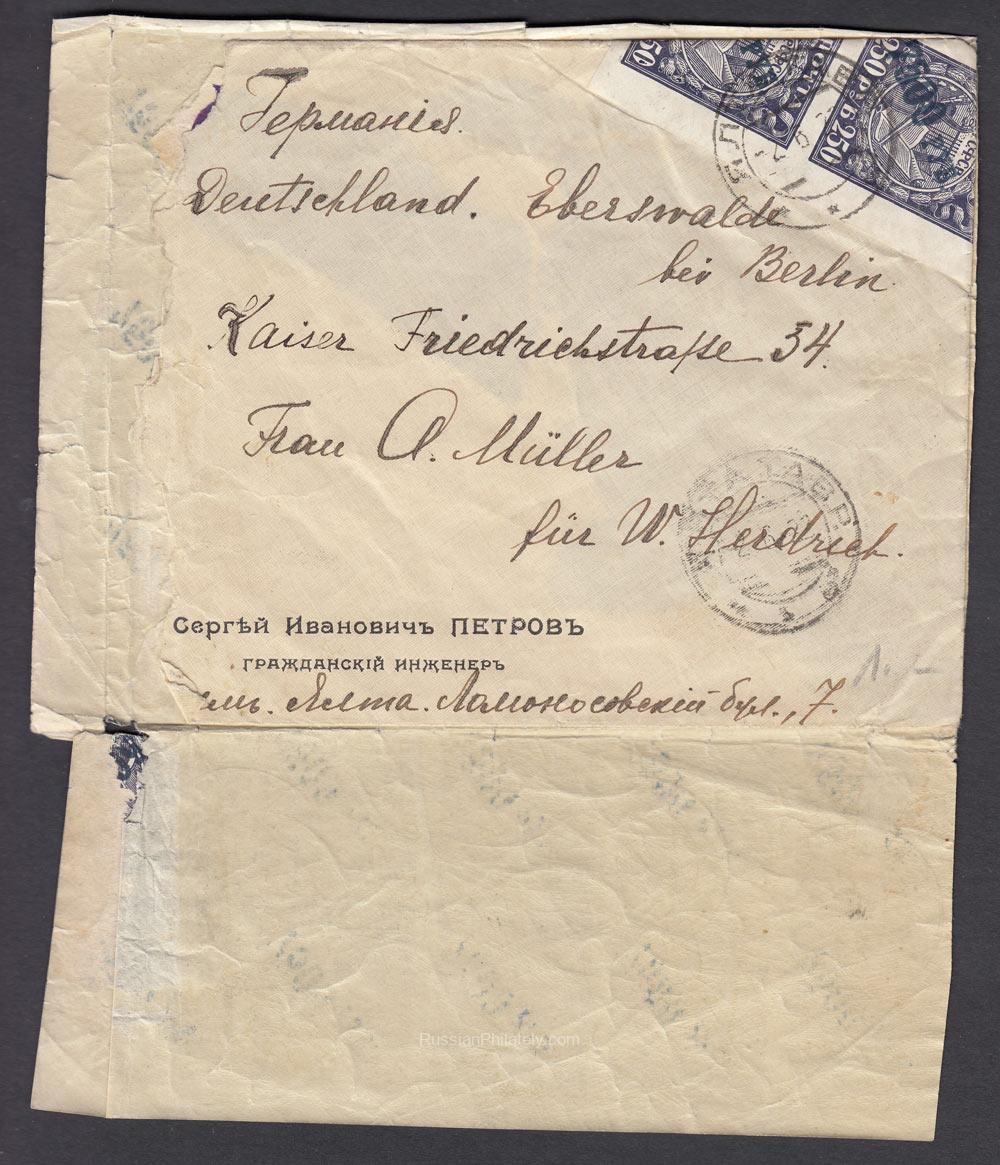 Германія.
Deutschland. Eberswalde
bei Berlin
Kaiser Friedrichstraße 34.
Frau A. Müller
für W. Herdrich.
Сергѣй Ивановичъ ПЕТРОВЪ
ГРАЖДАНСКІЙ ИНЖЕНЕРЪ
Ялта. Ломоносовскій бул., 7.
250 РУБ 250
ПОЧТА
RussianPhilately.com